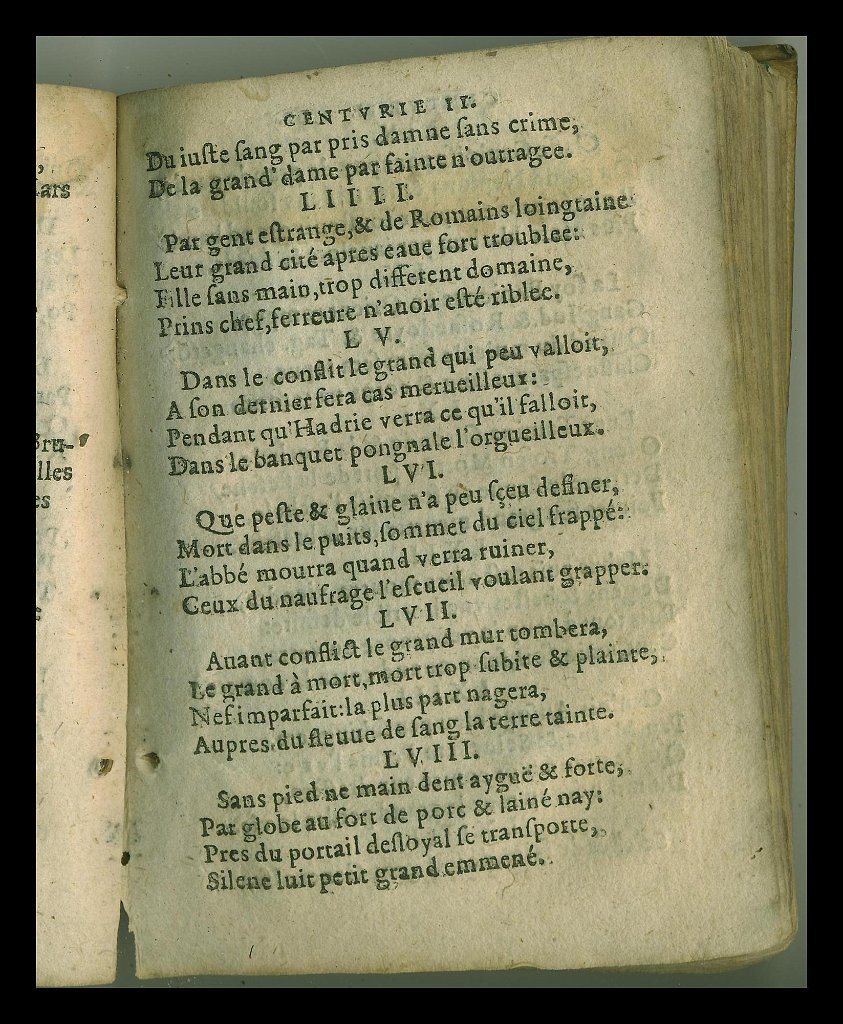 ars
Bru-
lles
es
CENTVRIE II.
Du iuſte ſang par pris damne ſans crime,
De la grand' dame par fainte n'outragee.
LIIII.
Par gent eſtrange, & de Romains loingtaine
Leur grand cité apres eaue fort troublee:
Fille ſans main, trop different domaine,
Prins chef, ferreure n'auoir eſté riblee.
LV.
Dans le conflit le grand qui peu valloit,
A ſon dernier fera cas merueilleux:
Pendant qu'Hadrie verra ce qu'il falloit,
Dans le banquet pongnale l'orgueilleux.
LVI.
Que peſte & glaiue n'a peu ſçeu definer,
Mort dans le puits, ſommet du ciel frappé:
L'abbé mourra quand verra ruiner,
Ceux du naufrage l'eſcueil voulant grapper.
LVII.
Auant conflict le grand mur tombera,
Le grand à mort, mort trop ſubite & plainte,
Nef imparfait: la plus part nagera,
Aupres du fleuue de ſang la terre tainte.
LVIII.
Sans pied ne main dent ayguë & forte,
Par globe au fort de porc & lainé nay:
Pres du portail desloyal ſe tranſporte,
Silene luit petit grand emmené.